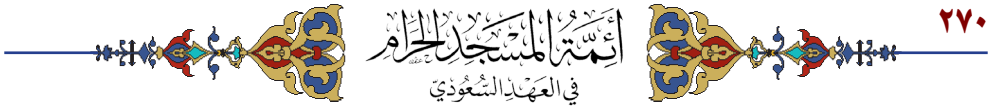 ٢٧٠
أَئِمَّةُ المَسْجِدِ الحَرَامِ
فِي العَهْدِ السُّعُودِيِّ